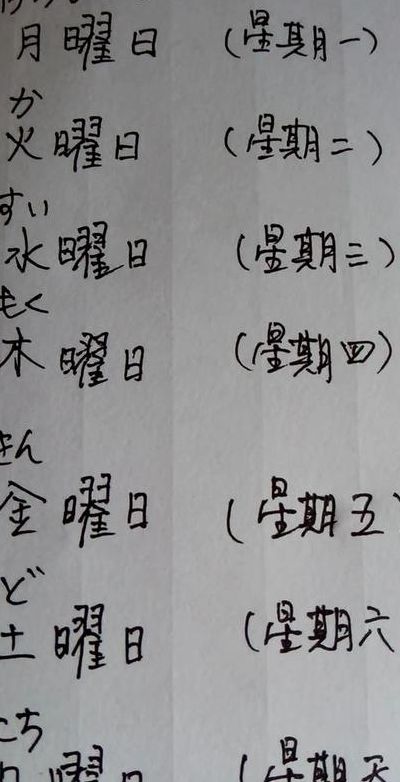 月曜日 (星期一)
か
火曜日 (星期二)
すい
水曜日 (星期三)
もく
木曜日 (星期四)
きん
金曜日 (星期五
ど
土曜日 (星期六
にち
日曜日 (星期天